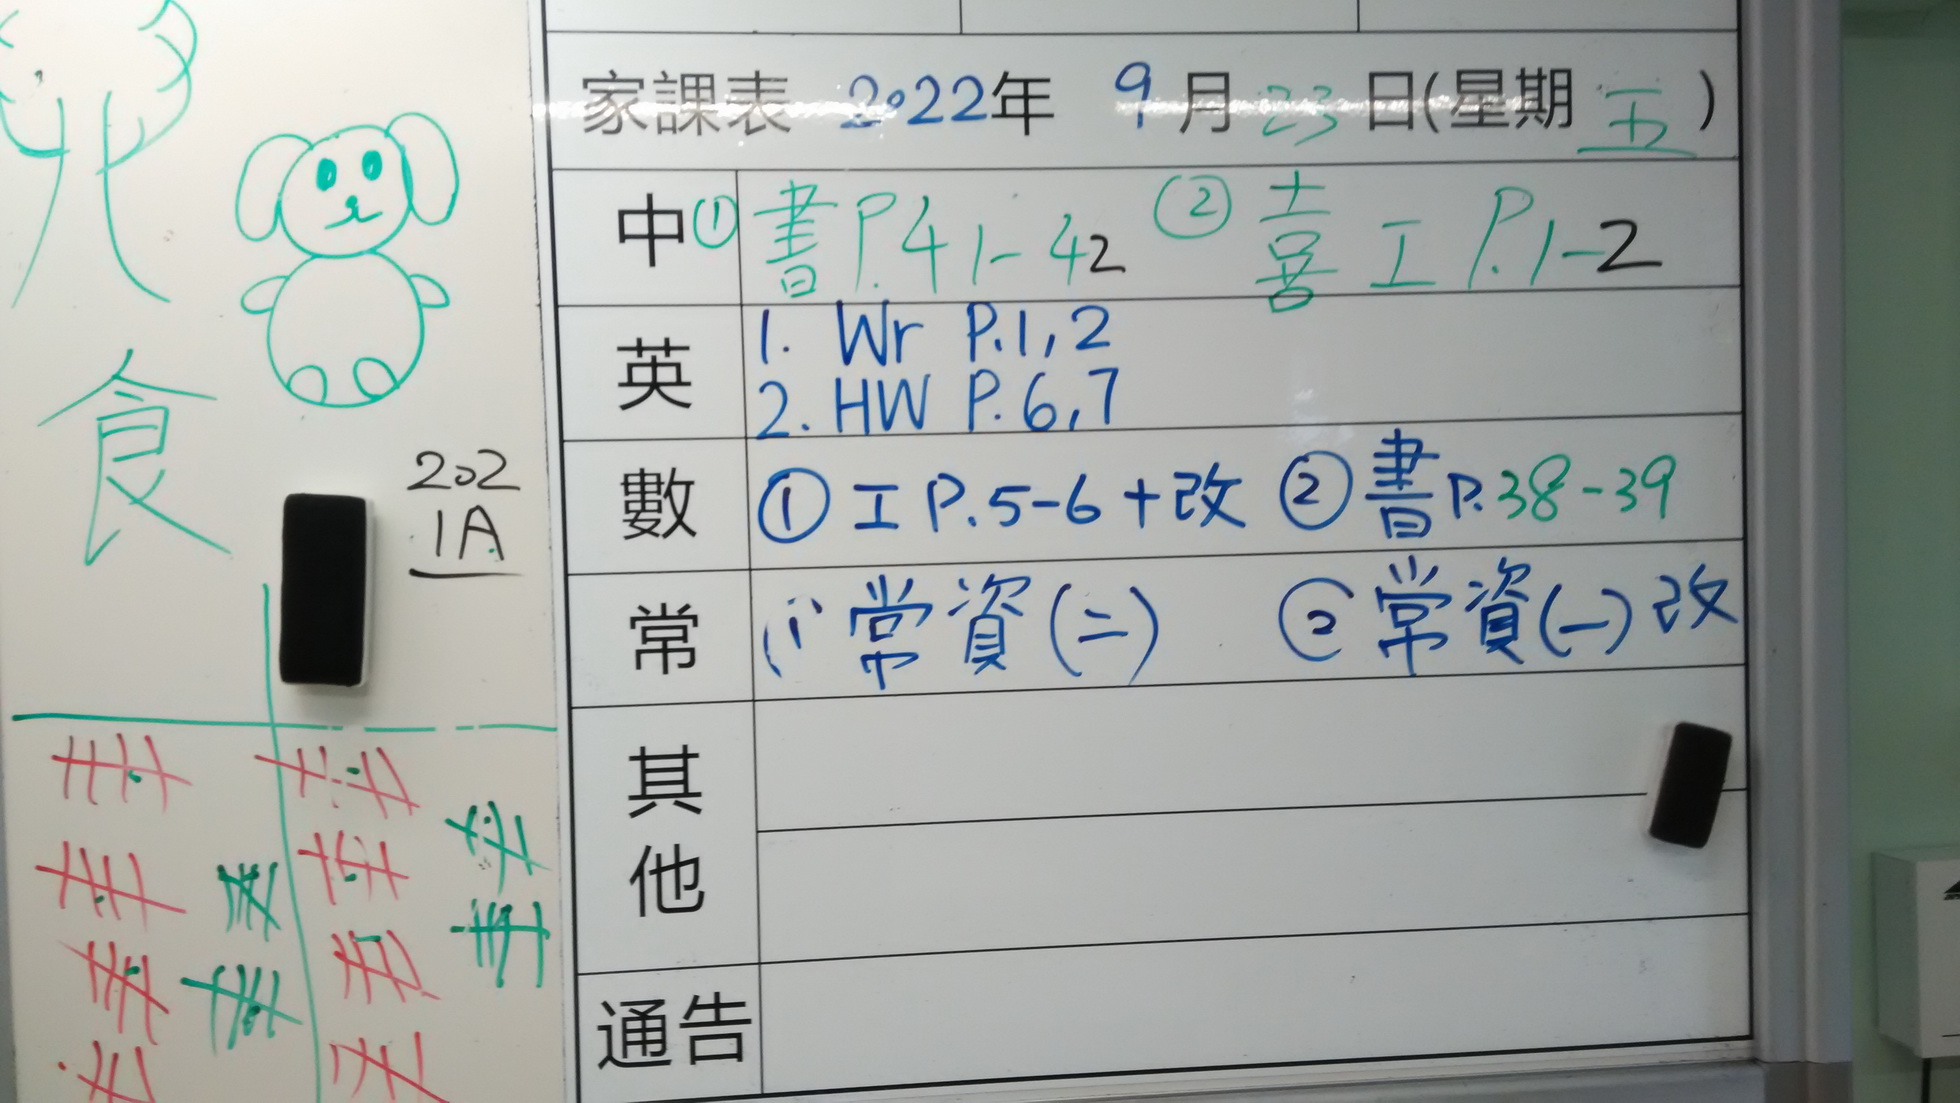 食
202
1A
家課表 2022年 9月23日(星期五)
中 ① 書 P.41-42 ② 喜 工 P.1-2
英 1. Wr P.1,2
2. HW P.6,7
數 ① 工 P.5-6+改 ② 書 P.38-39
常 (1) 常資(二) ② 常資(一)改
其他
通告